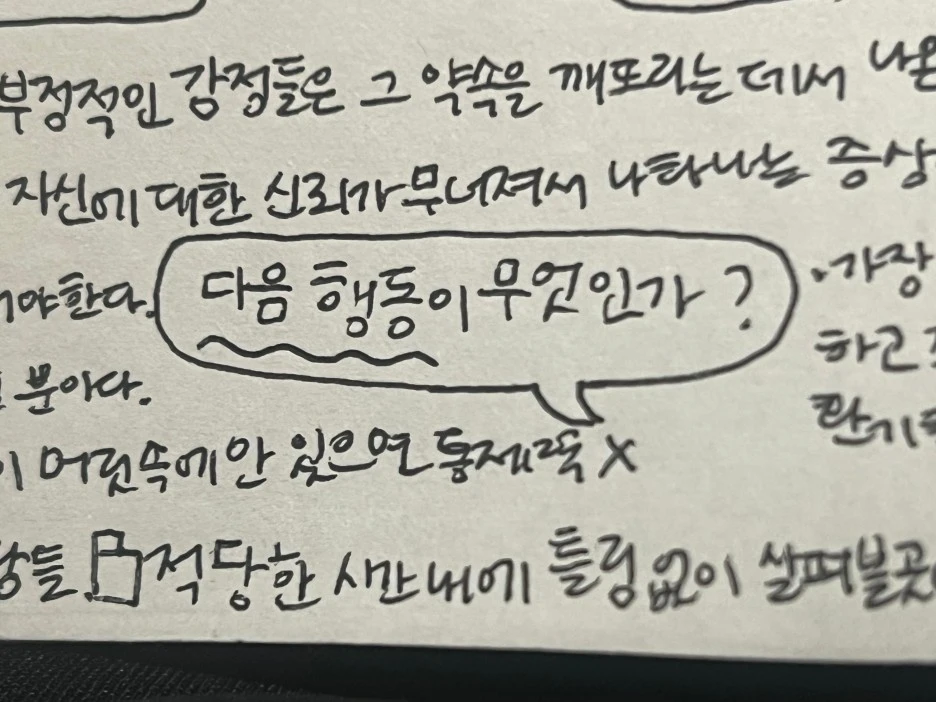 부정적인 감정들은 그 약속을 깨뜨리는 데서 나온
자신에 대한 신뢰가 무너져서 나타나는 증상
야한다.
다음 행동이 무엇인가?
·가장
하고
분야다.
이 머릿속에만 있으면 통제력 X
적당한 시간내에 틀림없이 살펴볼곳